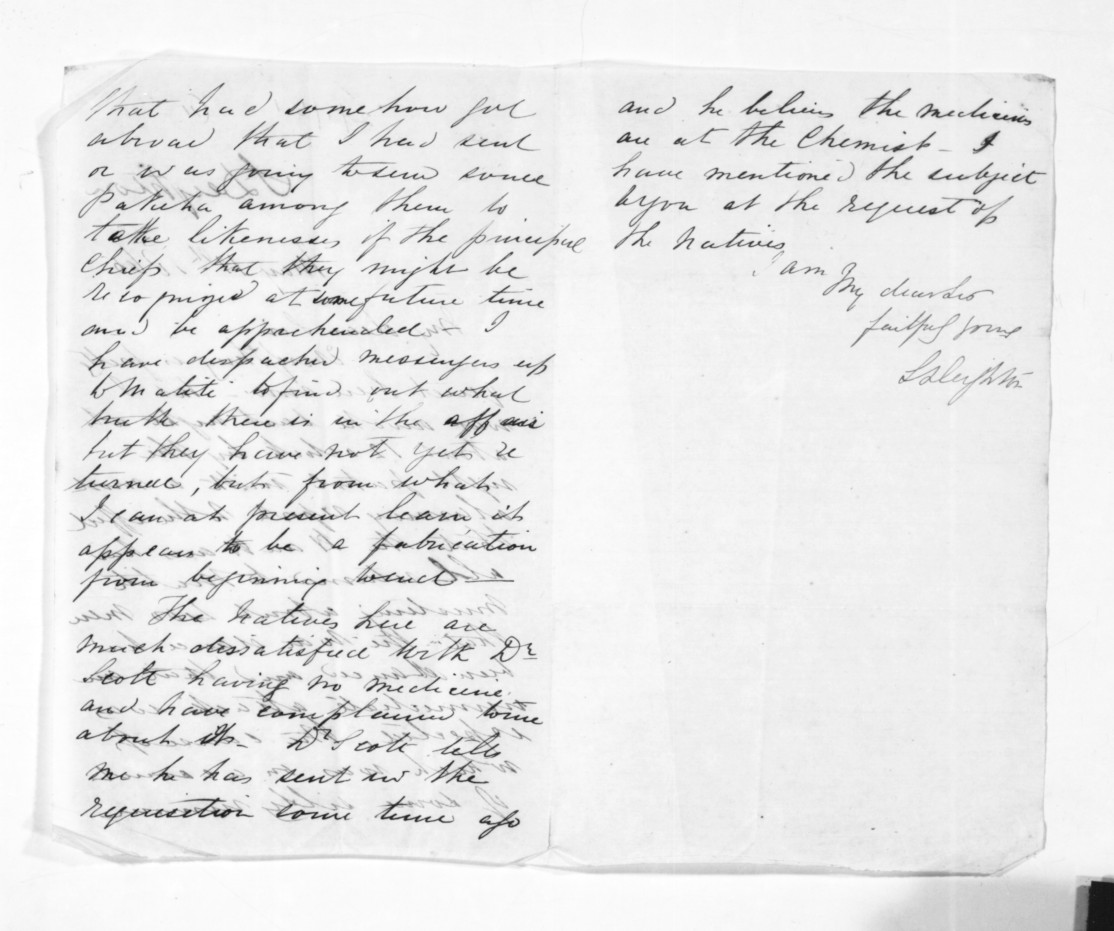 that had somehow got
abroad that I had sent
or was going to send some
Pakeha among them to
take likenesses of the principal
Chiefs that they might be
recognized at some future time
and be apprehended I
have dispatched messengers up
to Matiti to find out what
truth there is in the affair
but they have not yet re
turned, but from what
I can at present learn it
appears to be a fabrication
from beginning to end —
The Natives here are
much dissatisfied with Dr
Scott having no medicine
and have complained to me
about it - Dr Scott tells
me he has sent in the
requisition some time ago
and he believes the medicines
are at the Chemist - I
have mentioned the subject
to you at the request of
the natives
I am My dear Sir
faithful yours
S Deighton